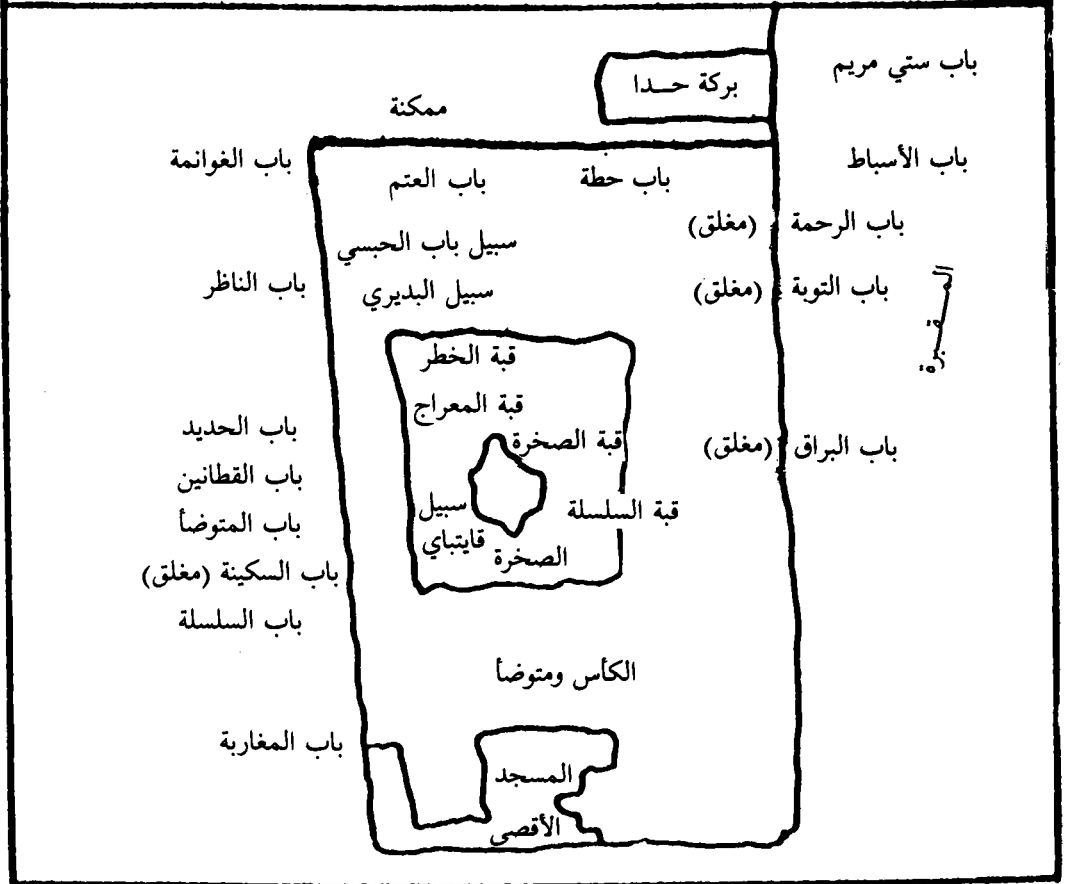 باب ستي مريم
بركة حـدا
ممكنة
باب الأسباط
باب الغوانمة
باب حطة
باب العتم
باب الرحمة (مغلق)
سبيل باب الحبسي
باب التوبة (مغلق)
سبيل البديري
باب الناظر
المقبرة
قبة الخطر
قبة المعراج
قبة الصخرة
باب البراق (مغلق)
باب الحديد
باب القطانين
سبيل
قايتباي
قبة السلسلة
باب المتوضأ
الصخرة
باب السكينة (مغلق)
باب السلسلة
الكأس ومتوضأ
باب المغاربة
المسجد
الأقصى